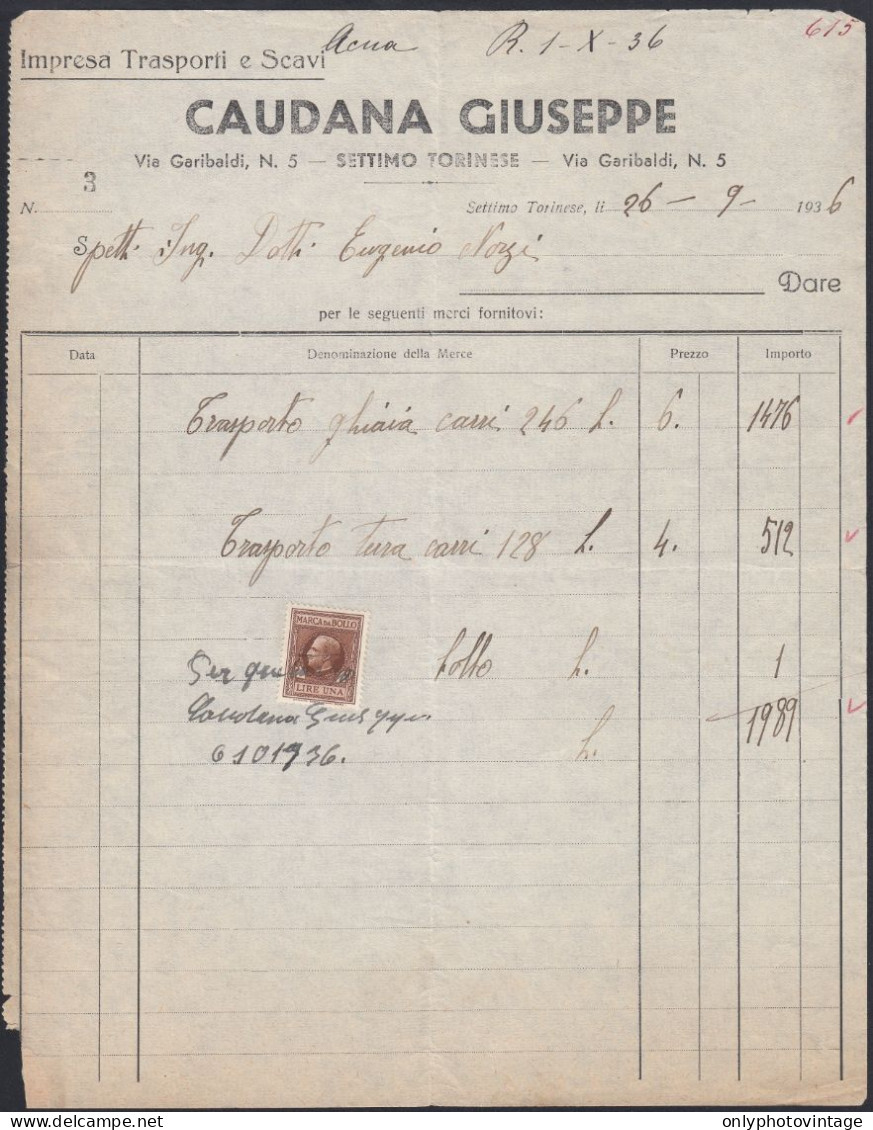 R. 1-X-36
615
Impresa Trasporti e Scavi
CAUDANA GIUSEPPE
Via Garibaldi, N. 5 — SETTIMO TORINESE — Via Garibaldi, N. 5
N. 3
Settimo Torinese, li 26 - 9 - 1936
Spett. Ing. Dott. Eugenio Norzi
Dare
per le seguenti merci fornitovi:
Data Denominazione della Merce Prezzo Importo
Trasporto ghiaia carri 246 L. 6. 1476
Trasporto terra carri 128 L. 4. 512
MARCA DA BOLLO
LIRE UNA
Per bollo L. 1
Caudana Giuseppe
L. 1989
6101936.
onlyphotovintage